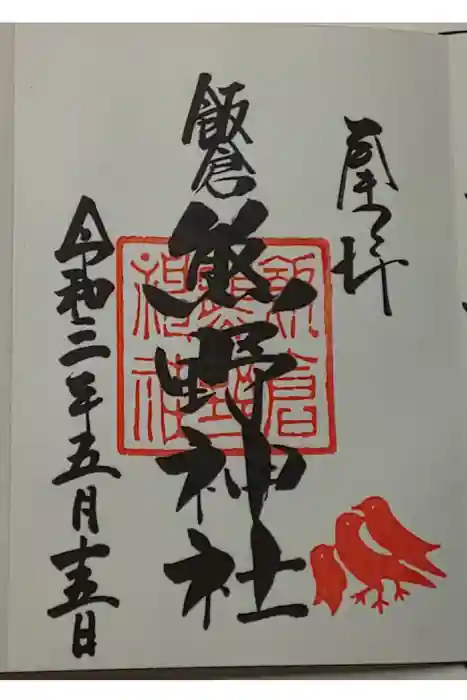 奉拝
飯倉
熊野神社
令和三年五月十五日
飯倉
熊野
神社